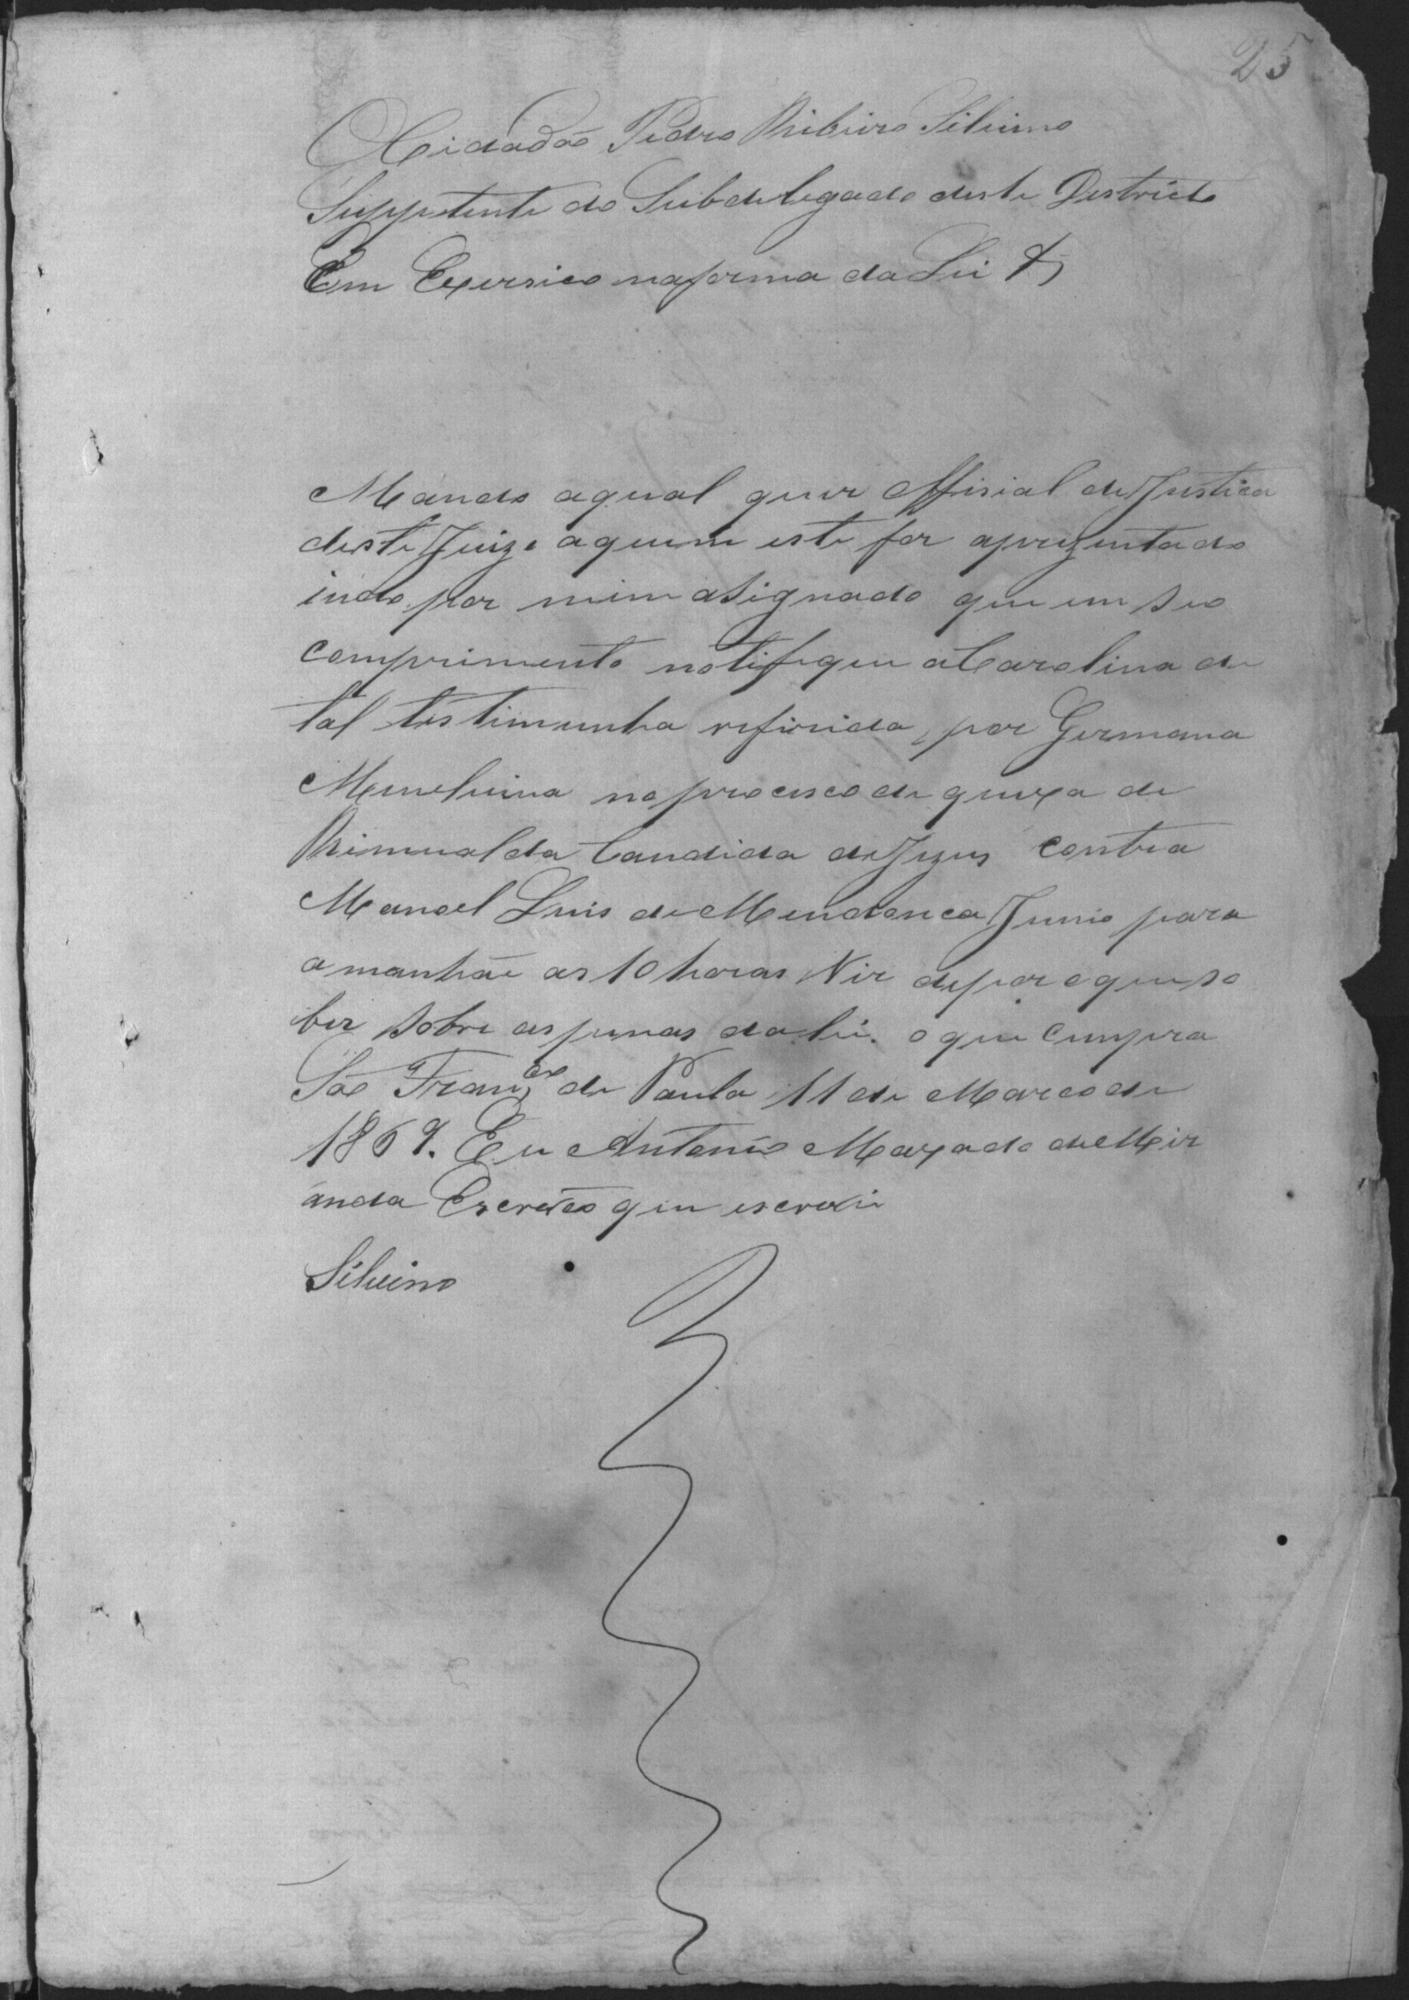 25
O Cidadão Pedro Ribeiro Silvino
Suppetente do Subdelegado deste Destricto
Em Exersico na forma da Lei &
Mando aqual quer Offisial de Justica
deste Juizo aquem este for aprezentado
indo por mim asignado que em seo
comprimento notifique a Carolina de
tal testimunha referida, por Germana
no procesco de queixa de
Rimualda Candida de Jezus contra
Manoel Luis de Mendonca Junio para
amanhãe as 10 horas Vir depor o que so
ber sobre as penas da lei. o que cumpra
São Franco de Paula 11 de Marco de
1869. Eu Antonio Maxado de Mir
anda Escrivão que escrevi
Silvino